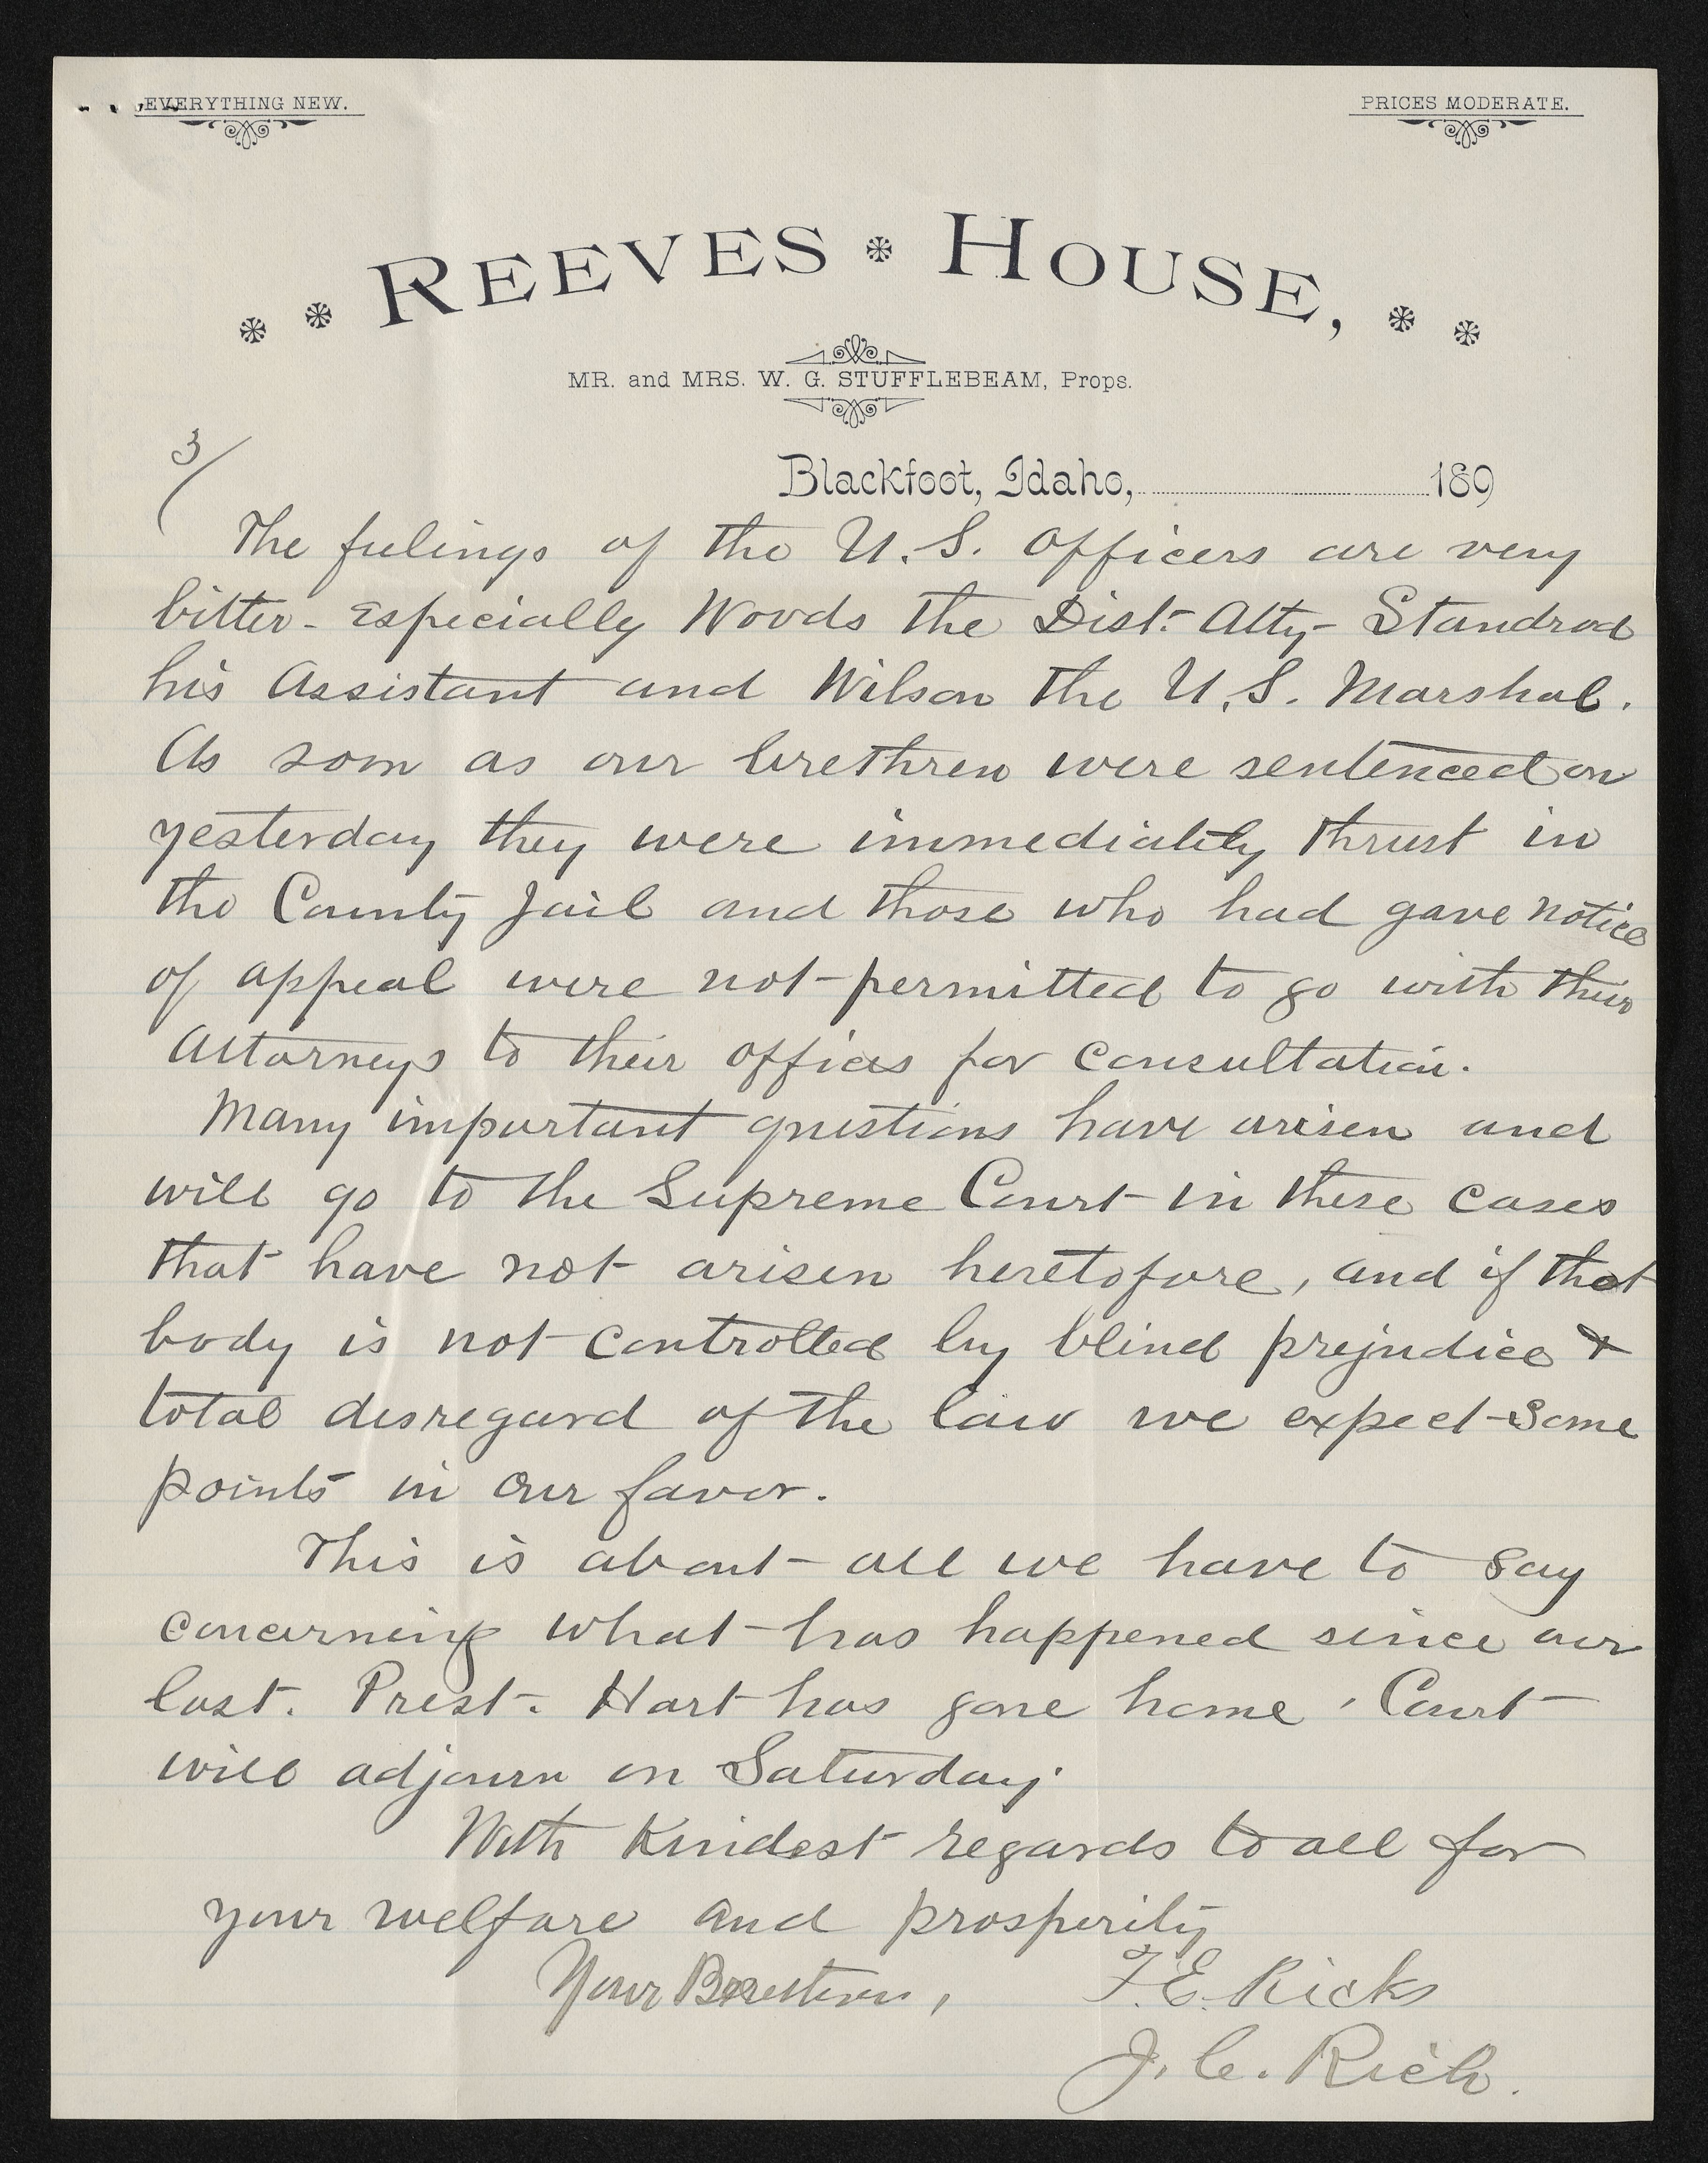 EVERYTHING NEW.
PRICES MODERATE.
REEVES HOUSE,
MR. and MRS. W. G. STUFFLEBEAM, Props.
3/
Blackfoot, Idaho, 189
The feelings of the U.S. officers are very
bitter - Especially Woods the Dist. Atty - Standrod
his Assistant and Wilson the U.S. Marshal.
As soon as our brethren were sentenced on
yesterday they were immediatily thrust in
the County Jail and those who had gave notice
of appeal were not permitted to go with their
Attorneys to their offices for consultation.
Many important questions have arisen and
will go to the Supreme Court in these cases
that have not arisen heretofore, and if that
body is not controlled by blind prejudice &
total disregard of the law we expect some
points in our favor.
This is about all we have to say
concerning what has happened since our
last. Prest. Hart has gone home. Court
will adjourn on Saturday.
With Kindest regards to all for
your welfare and prosperity
Your Brethren,
T. E. Ricks
J. C. Rich.